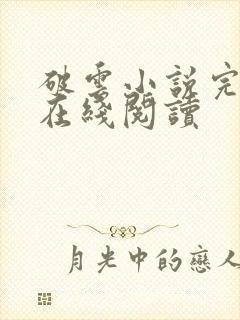 破雲小説完
在綫閱讀
月光中的戀人